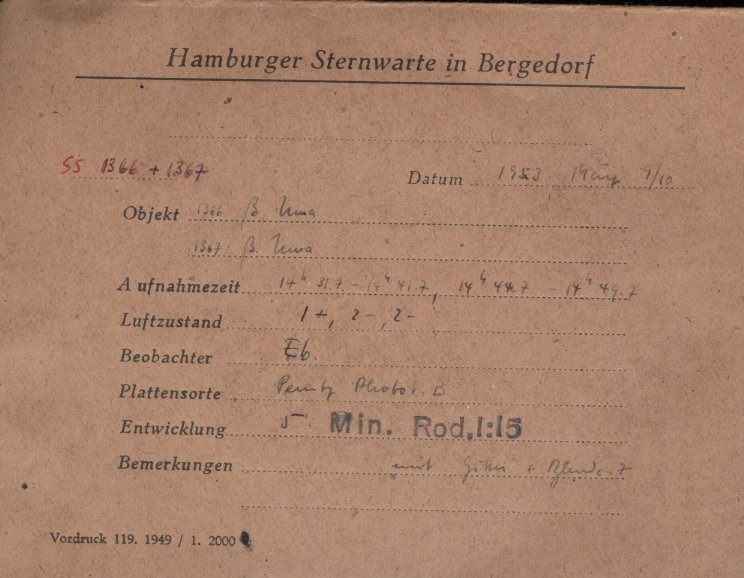 Hamburger Sternwarte in Bergedorf
SS 1366 + 1367 Datum 1953 März 9/10
Objekt 1366 β Uma
1367 β Uma
Aufnahmezeit 14h 31.7 - 14h 41.7, 14h 44.7 - 14h 49.7
Luftzustand 1+, 2-, 2-
Beobachter Eb.
Plattensorte Perutz Phobo B
Entwicklung 5 Min. Rod. 1:15
Bemerkungen mit Gitter + Blende 7
Vordruck 119. 1949 / 1. 2000